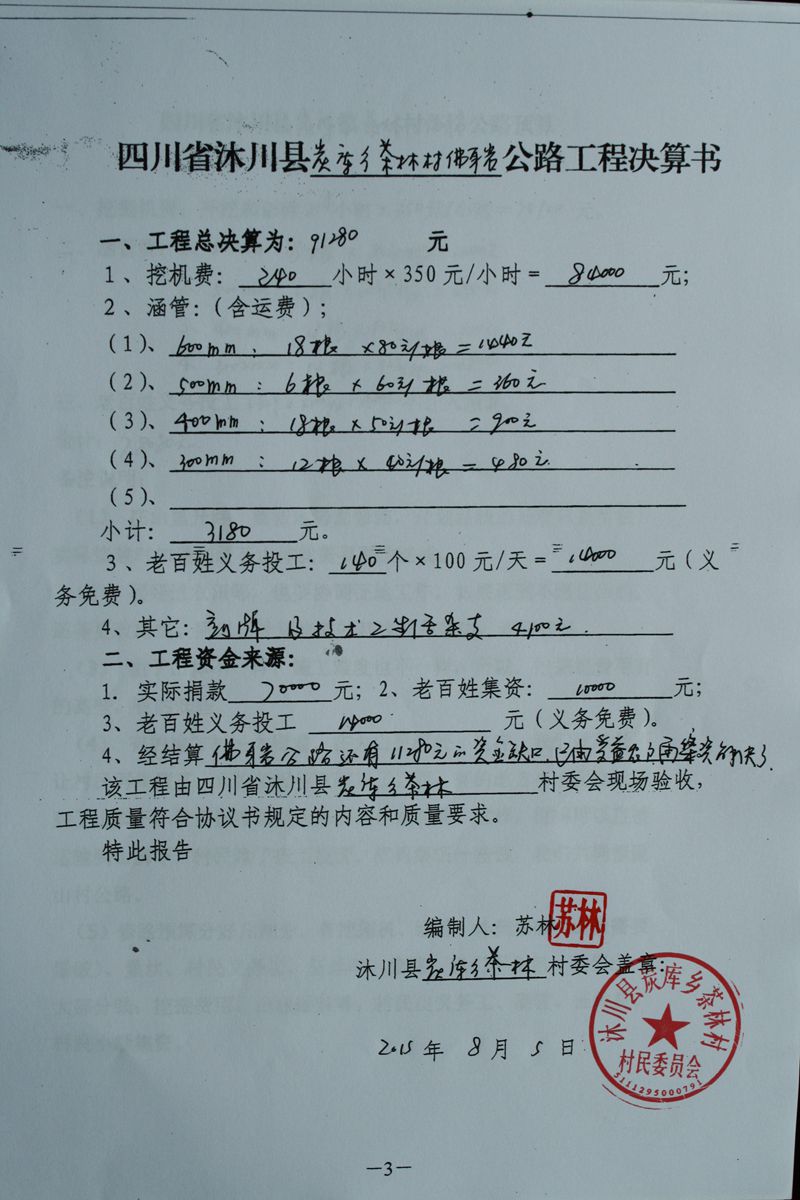 四川省沐川县炭库乡茶林村佛耳岩公路工程决算书
一、工程总决算为：91280 元
1、挖机费：240小时×350元/小时=84000元；
2、涵管：（含运费）；
（1）、600mm：18根×80元/根=1440元
（2）、500mm：6根×60元/根=360元
（3）、400mm：18根×50元/根=900元
（4）、300mm：12根×40元/根=480元
（5）、
小计：3180元。
3、老百姓义务投工：140个×100元/天=14000元（义
务免费）。
4、其它：及技术工 生活杂支 4100元.
二、工程资金来源：
1. 实际捐款70000元；2、老百姓集资：10000元；
3、老百姓义务投工 14000 元（义务免费）。
4、经结算佛耳岩公路还有11280元的资金缺口，已由受益农户再集资解决了.
该工程由四川省沐川县炭库乡茶林村委会现场验收，
工程质量符合协议书规定的内容和质量要求。
特此报告
编制人：苏林
苏林
沐川县炭库乡茶林村委会盖章：
沐川县炭库乡茶林村
村民委员会
5111295000791
2015年8月5日
—3—